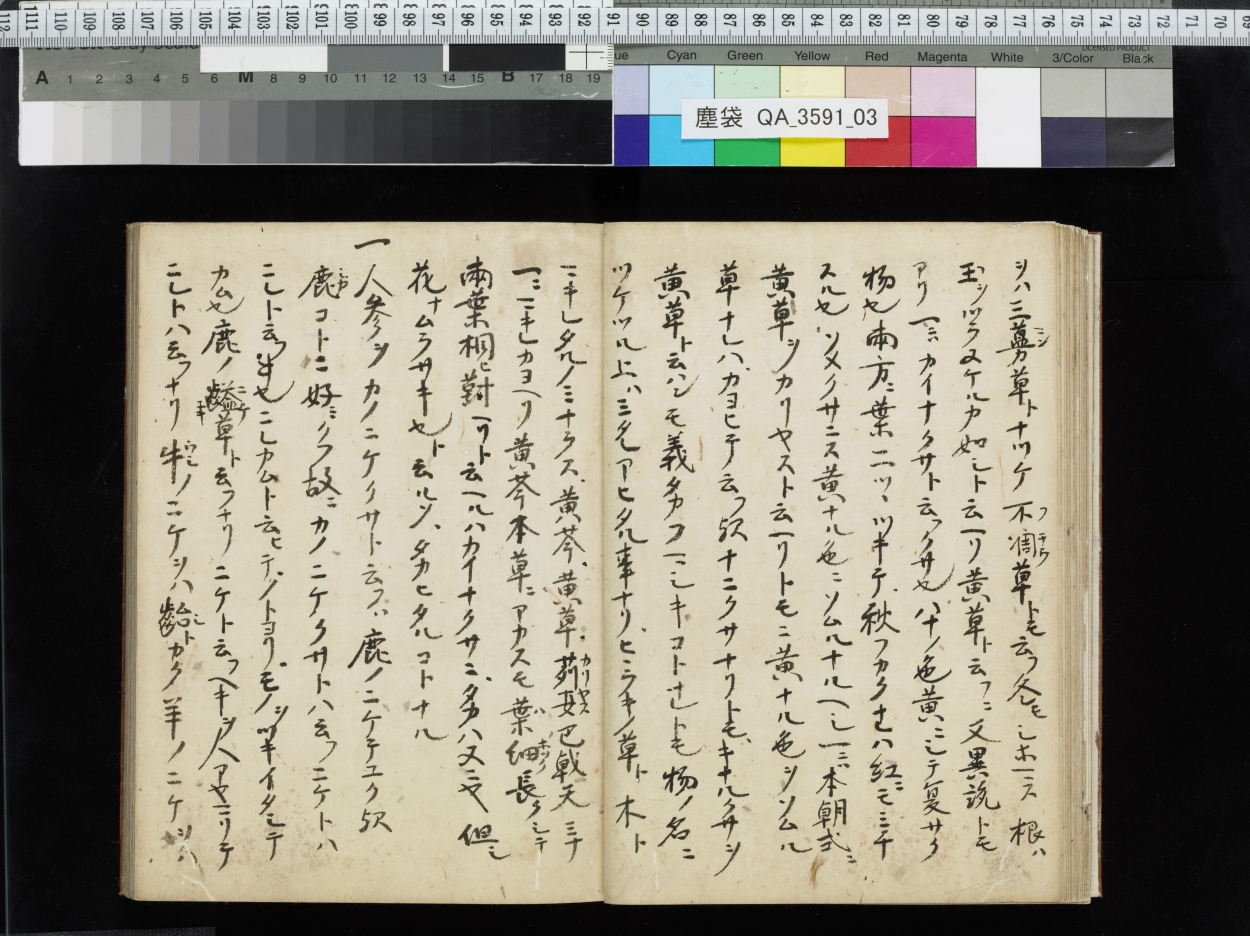 112 111 110 109 108 107 106 105 104 103 102 101 100 99 98 97 96 95 94 93 92 91 90 89 88 87 86 85 84 83 82 81 80 79 78 77 76 75 74 73 72 71 70 69
Cyan Green Yellow Red Magenta White 3/Color Black
LICENSED PRODUCT
A 1 2 3 4 5 6 M 8 9 10 11 12 13 14 15 B 17 18 19
塵袋 QA_3591_03
シハ三蔓草トナツケ不凋草トモ云フ冬モシホマス根ハ
玉ヲツラヌケルカ如シト云ヘリ黄草ト云フニ又異説トモ
アリ一ニハカイナクサト云フクサ也ハナノ色黄ニシテ夏サク
物也両方ニ葉二ツヽツキテ秋フカクナレハ紅ニモミチ
スル也ソメクサニス黄ナル色ニソムルナルヘシ一ニハ本朝式ニ
黄草ヲカリヤスト云ヘリトモニ黄ナル色ヲソムル
草ナレハカヨヒテ云フ歟ナニクサナリトモキナルクサヲ
黄草ト云ハンモ義タカフヘシキコトナレトモ物ノ名ニ
ツケツル上ハミタアヒタル事ナリヒミラキノ草ト木ト
ニキレタルノミナラス黄芩黄草苅安巴戟天ミナ
一ニニキレカヨヘリ黄芩本草ニアカスモ葉細長クシテ
両葉相ヒ対ヘリト云ヘルハカイナクサニタカハヌ也但シ
花ナムラサキ也ト云ルソタカヒタルコトナル
一人参ヲカノニケクサト云フハ鹿ノニケテユク歟
鹿コトニ好ミクフ故ニカノニケクサトハ云フニケトハ
ニレト云フ也ニレカムト云ヒテノトヨリモノヲツキイタシテ
カム也鹿ノ齸草ト云フナリニケト云フヘキヲ人アヤマリテ
ニレトハ云フナリ牛ノニケヲハ齝トカク羊ノニケヲハ